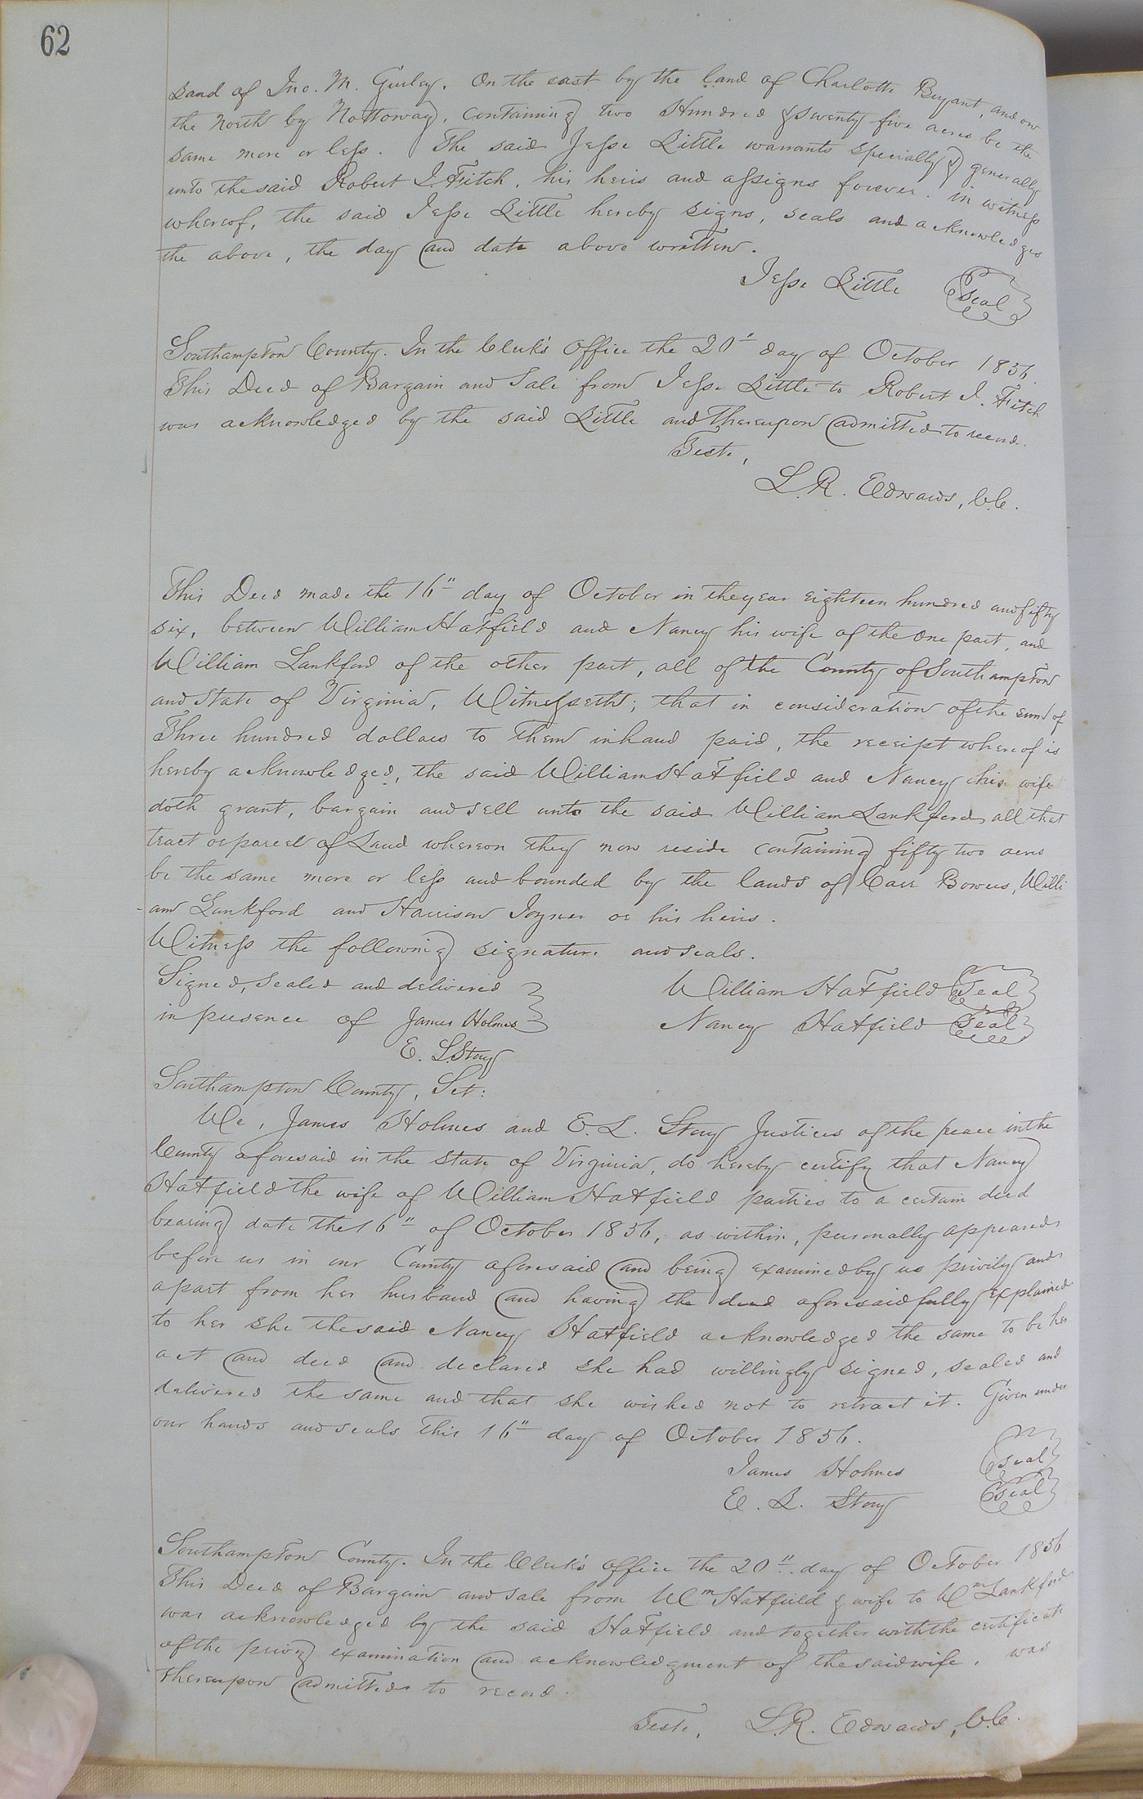 62
Land of Jno. M. Gurley. On the east by the land of Charlotte Bryant, and on
the North by Nottoway, containing two Hundred & seventy five acres be the
same more or less. The said Jesse Little warrants specially & generally
unto the said Robert J. Fitch, his heirs and assigns forever. in witness
whereof, the said Jesse Little hereby signs, seals and acknowledges
the above, the day and date above written.
Jesse Little Seal
Southampton County. In the Clerk's Office the 20" day of October 1856.
This Deed of Bargain and Sale from Jesse Little to Robert J. Fitch
was acknowledged by the said Little and thereupon admitted to record.
Teste,
L. R. Edwards, C.C.
This Deed made the 16" day of October in the year eighteen hundred and fifty
six, between William Hatfield and Nancy his wife of the one part, and
William Lankford of the other part, all of the County of Southampton
and State of Virginia, Witnesseth; that in consideration of the sum of
Three hundred dollars to them in hand paid, the receipt whereof is
hereby acknowledged, the said William Hatfield and Nancy his wife
doth grant, bargain and sell unto the said William Lankford all that
tract or parcel of Land whereon they now reside containing fifty two acres
be the same more or less and bounded by the lands of Carr Bowers, Willi
am Lankford and Harrison Joyner or his heirs.
Witness the following signature and seals.
Signed, sealed and delivered William Hatfield Seal
in presence of James Holmes Nancy Hatfield Seal
E. L. Story
Southampton County, Sct:
We, James Holmes and E. L. Story Justices of the peace in the
County aforesaid in the State of Virginia, do hereby certify that Nancy
Hatfield the wife of William Hatfield parties to a certain deed
bearing date the 16" of October 1856, as within, personally appeared
before us in our County aforesaid and being examined by us privily and
apart from her husband and having the deed aforesaid fully explained
to her she the said Nancy Hatfield acknowledged the same to be her
act and deed and declared she had willingly signed, sealed and
delivered the same and that she wished not to retract it. Given under
our hands and seals this 16" day of October 1856.
James Holmes Seal
E. L. Story Seal
Southampton County. In the Clerk's Office the 20" day of October 1856
This Deed of Bargain and sale from Wm Hatfield & wife to Wm Lankford
was acknowledged by the said Hatfield and together with the certificate
of the privy examination and acknowledgment of the said wife, was
thereupon admitted to record.
Teste, L. R. Edwards, C.C.